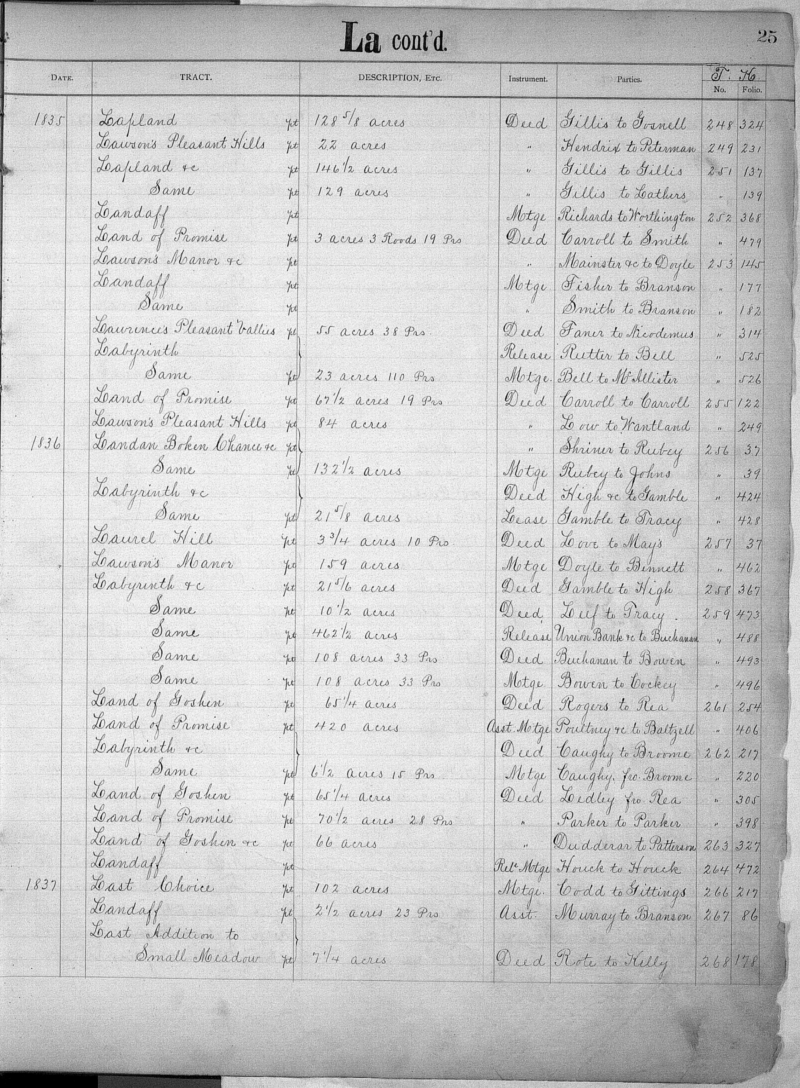 La cont'd.
25
DATE. TRACT. DESCRIPTION, ETC. Instrument. Parties. T. H.
No. Folio.
1835 Lapland pt 128 5/8 acres Deed Gillis to Gosnell 248 324
Lawson's Pleasant Hills pt 22 acres " Hendrix to Peterman 249 231
Lapland &c pt 146 1/2 acres " Gillis to Gillis 251 137
Same pt 129 acres " Gillis to Lathers " 139
Landaff pt Mtge Richards to Worthington 252 368
Land of Promise pt 3 acres 3 Roods 19 Prs Deed Carroll to Smith " 479
Lawson's Manor &c pt " Mainster &c to Doyle 253 145
Landaff pt Mtge Fisher to Branson " 177
Same pt " Smith to Branson " 182
Lawrence's Pleasant Vallies pt 55 acres 38 Prs Deed Faner to Nicodemus " 314
Labyrinth Release Rutter to Bell " 525
Same pt 23 acres 110 Prs Mtge. Bell to McAllister " 526
Land of Promise pt 67 1/2 acres 19 Prs Deed Carroll to Carroll 255 122
Lawson's Pleasant Hills pt 84 acres " Low to Wantland " 249
1836 Landan Boken Chance &c pt " Shriner to Rubey 256 37
Same pt 132 1/2 acres Mtge Rubey to Johns " 39
Labyrinth &c Deed High &c to Gamble " 424
Same pt 21 5/8 acres Lease Gamble to Tracy " 428
Laurel Hill pt 3 3/4 acres 10 Prs Deed Love to Mays 257 37
Lawson's Manor pt 159 acres Mtge Doyle to Bennett " 462
Labyrinth &c pt 21 5/6 acres Deed Gamble to High 258 367
Same pt 10 1/2 acres Deed Leef to Tracy. 259 473
Same pt 462 1/2 acres Release Union Bank &c to Buchanan " 488
Same pt 108 acres 33 Prs Deed Buchanan to Bowen " 493
Same pt 108 acres 33 Prs Mtge Bowen to Cockey " 496
Land of Goshen pt 65 1/4 acres Deed Rogers to Rea 261 254
Land of Promise pt 420 acres Asst. Mtge Poultney &c to Baltzell " 406
Labyrinth &c Deed Caughy to Broome 262 217
Same pt 6 1/2 acres 15 Prs Mtge Caughy. fro. Broome " 220
Land of Goshen pt 65 1/4 acres Deed Ledley fro. Rea " 305
Land of Promise pt 70 1/2 acres 28 Prs " Parker to Parker " 398
Land of Goshen &c pt 66 acres " Dudderar to Patterson 263 327
Landaff pt Rels Mtge Houck to Houck 264 472
1837 Last Choice pt 102 acres Mtge. Todd to Gittings 266 217
Landaff pt 2 1/2 acres 23 Prs Asst. Murray to Branson 267 86
Last Addition to
Small Meadow pt 7 1/4 acres Deed Rote to Kelly 268 178